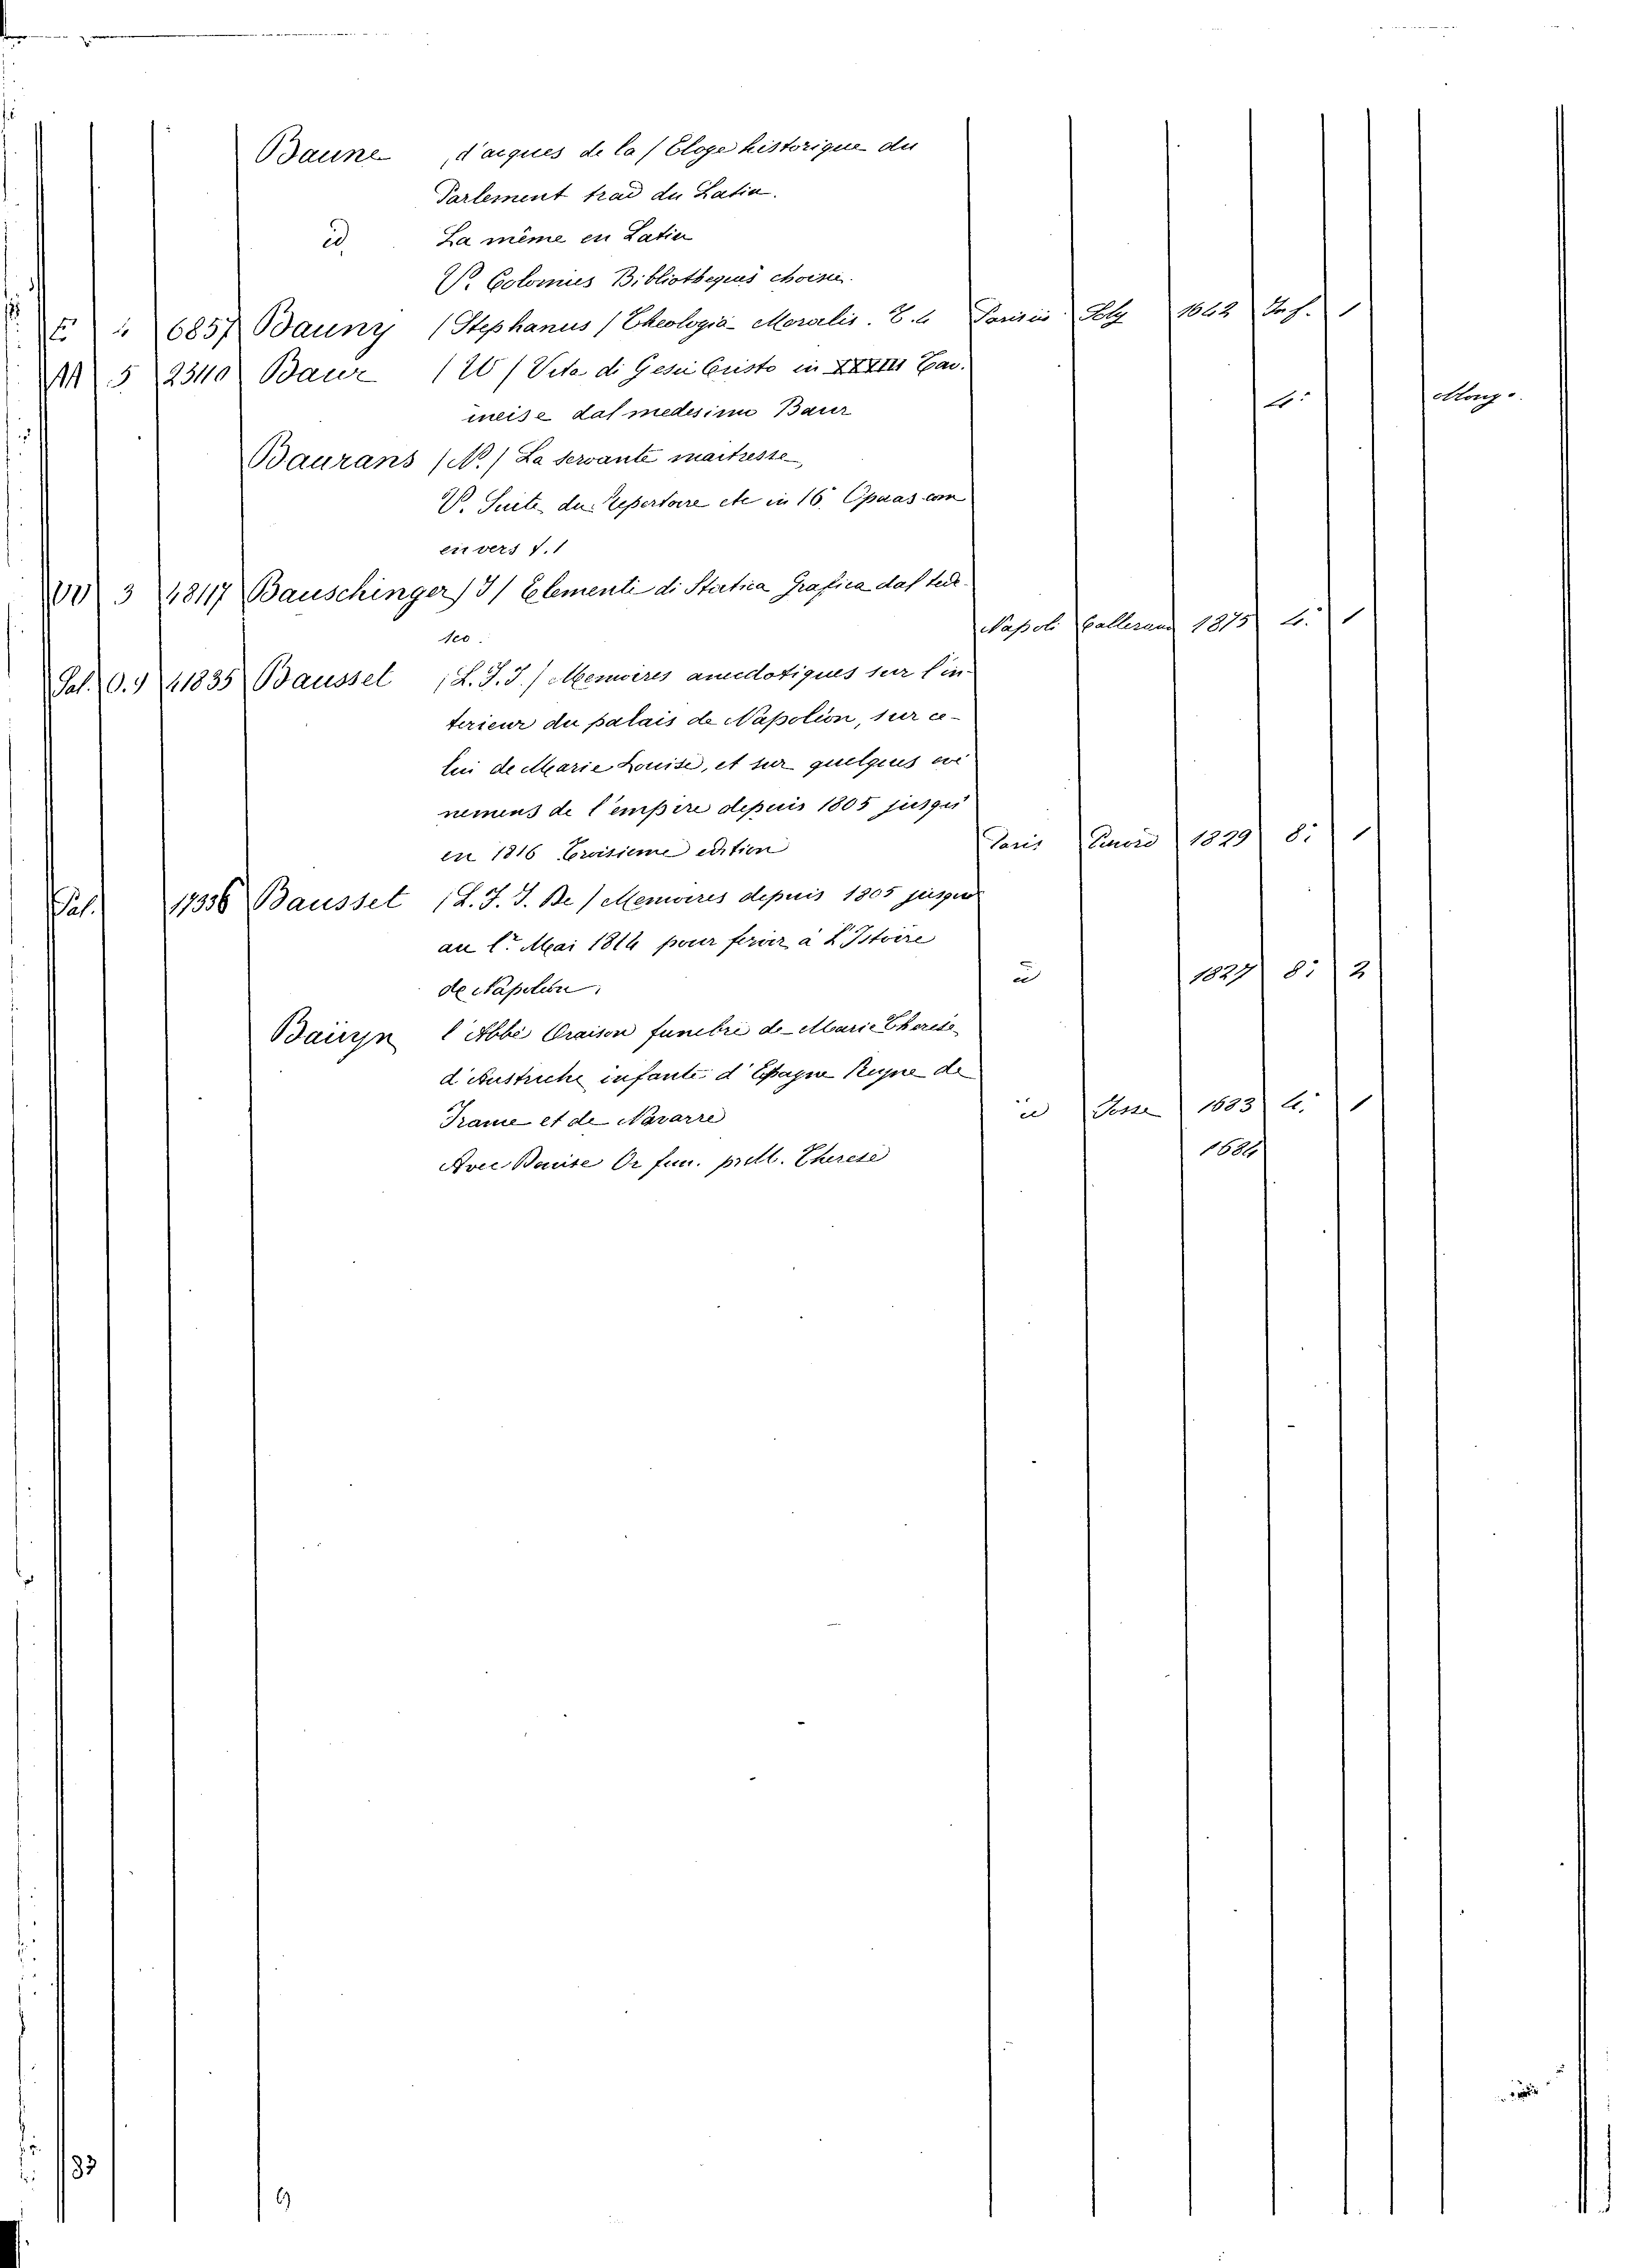 Baune (Jacques de la / Eloge historique du
Parlement trad du Latin.
id. La même en Latin
V. Colomies Bibliotheques choisie.
E 4 6857 Bauny (Stephanus / Theologia Moralis. T. 4 Parisiis Soly 1642 In f. 1
5 2340 Baur / Vita di Gesù Cristo in XXXIII Tav.
incise dal medesimo Baur 4: Mong.
Baurans (N.) La servante maitresse
V. Suite du Repertoire etc in 16. Operas com
en vers t. 1
3 48117 Bauschinger / J / Elementi di Statica Grafica dal tede
sco. Napoli 1875 4: 1
Pal. O. 9 41835 Bausset (L. F. J. / Memoires anecdotiques sur l'in-
terieur du palais de Napoléon, sur ce-
lui de Marie Louise, et sur quelques evé
nemens de l'empire depuis 1805 jusqu'
en 1816 Troisieme edition Paris 1829 8: 1
Pal. 17336 Bausset (L. F. J. De / Memoires depuis 1805 jusque
au 1.r Mai 1814 pour servir à l'Istoire
de Napoléon. id 1827 8: 2
Bauyn l'Abbé Oraison funebre de Marie Therese
d'Austriche infante d'Espagne Reyne de
France et de Navarre id Josse 1683 4: 1
Avec Bauise Or fun. pr M. Therese 1684
183
9